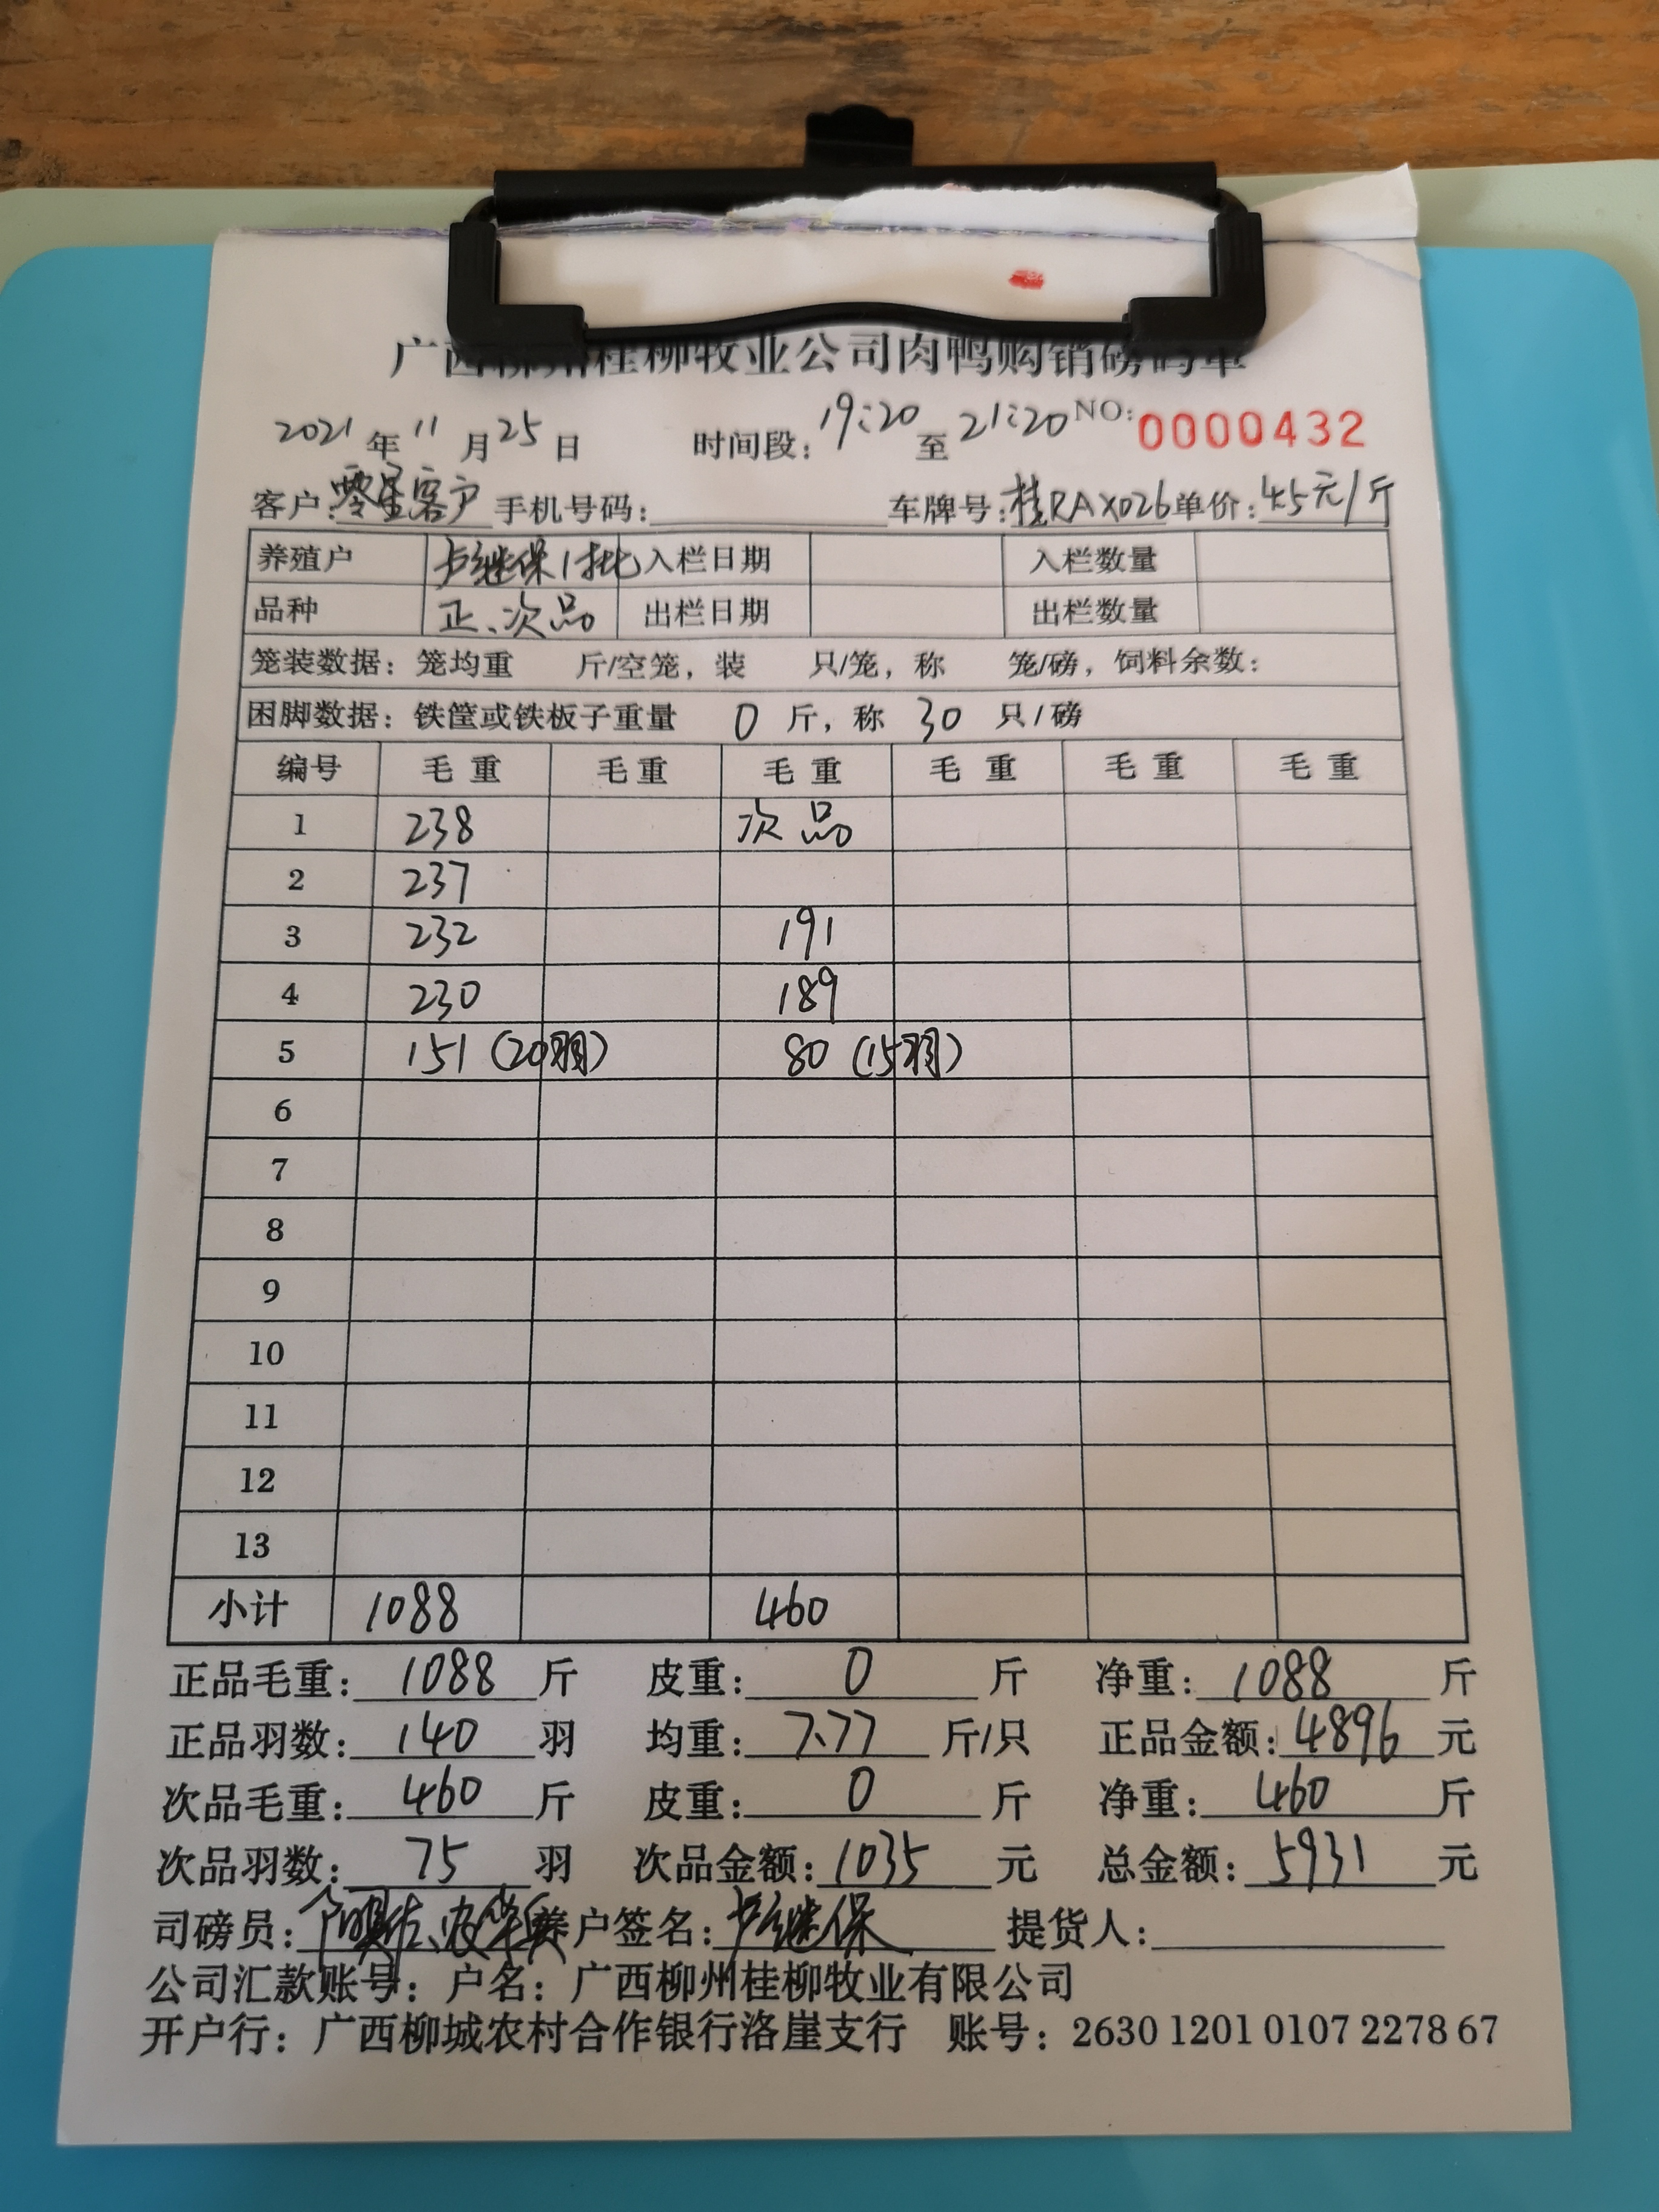 广西柳州桂柳牧业公司肉鸭购销磅码单
2021年11月25日 时间段：19:20至21:20 NO：0000432
客户：零星客户 手机号码： 车牌号：桂RAX026 单价：4.5元/斤
养殖户 卢继保1批 入栏日期 入栏数量
品种 正、次品 出栏日期 出栏数量
笼装数据：笼均重 斤/空笼，装 只/笼，称 笼/磅，饲料余数：
困脚数据：铁筐或铁板子重量 0 斤，称 30 只/磅
编号 毛重 毛重 毛重 毛重 毛重 毛重
1 238 次品
2 237
3 232 191
4 230 189
5 151（20羽） 80（15羽）
6
7
8
9
10
11
12
13
小计 1088 460
正品毛重：1088斤 皮重：0斤 净重：1088斤
正品羽数：140羽 均重：7.77斤/只 正品金额：4896元
次品毛重：460斤 皮重：0斤 净重：460斤
次品羽数：75羽 次品金额：1035元 总金额：5931元
司磅员： 养户签名：卢继保 提货人：
公司汇款账号：户名：广西柳州桂柳牧业有限公司
开户行：广西柳城农村合作银行洛崖支行 账号：2630 1201 0107 2278 67